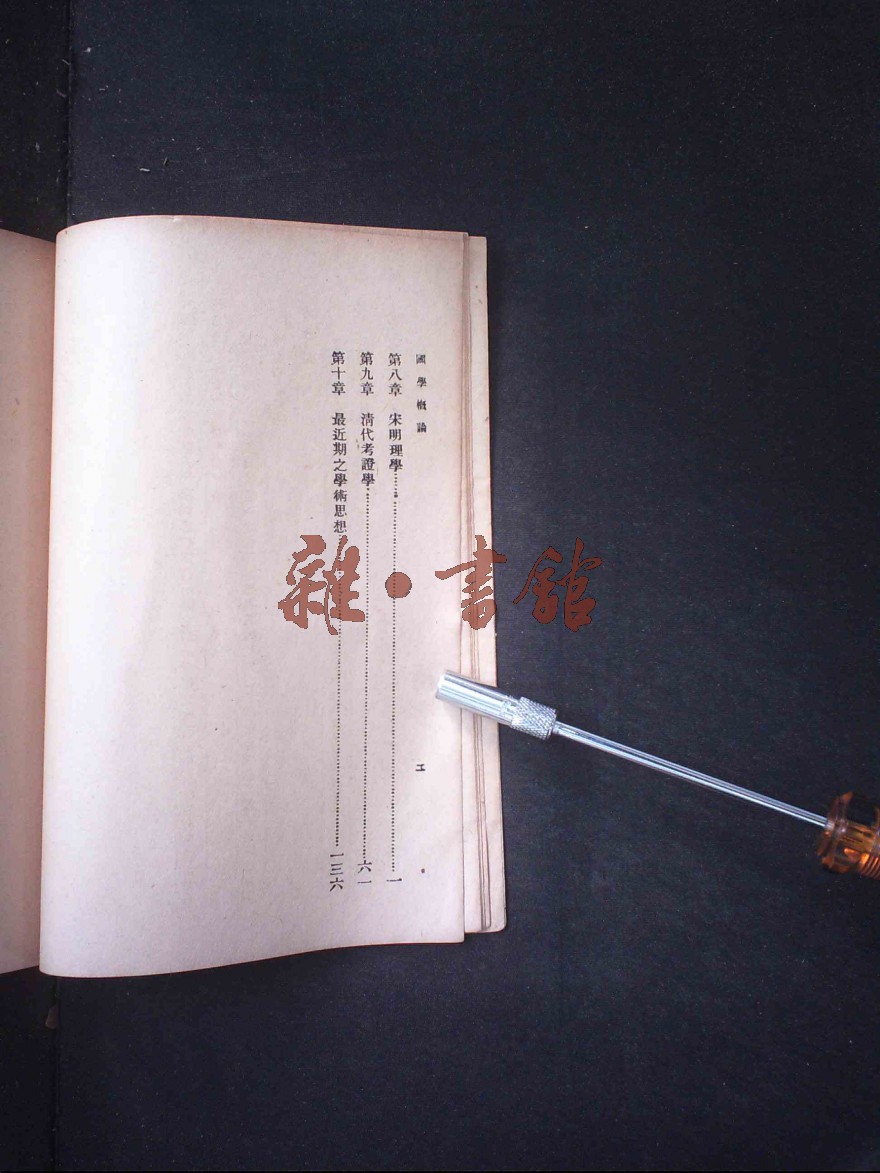 國學概論
工
第八章 宋明理學……一
第九章 清代考證學……六一
第十章 最近期之學術思想……一三六
雜·書館